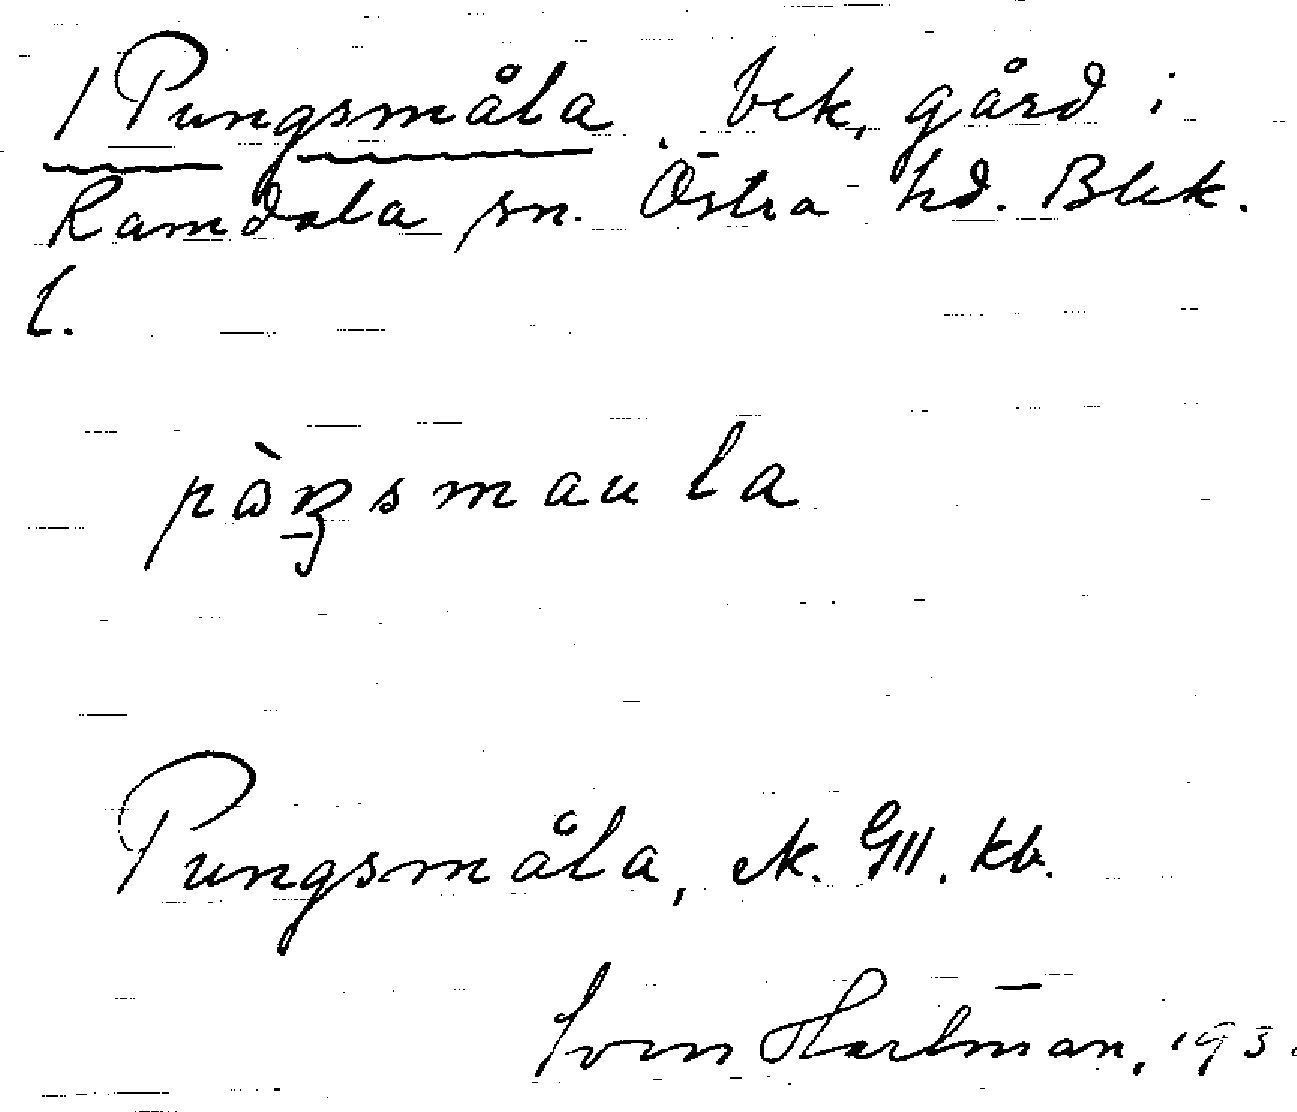 1 Pungsmåla, bek. gård i
Ramdala sn. Östra hd. Blek.
l.
Pungsmåla, ek. GIII. kb.
Sven Hartman, 193